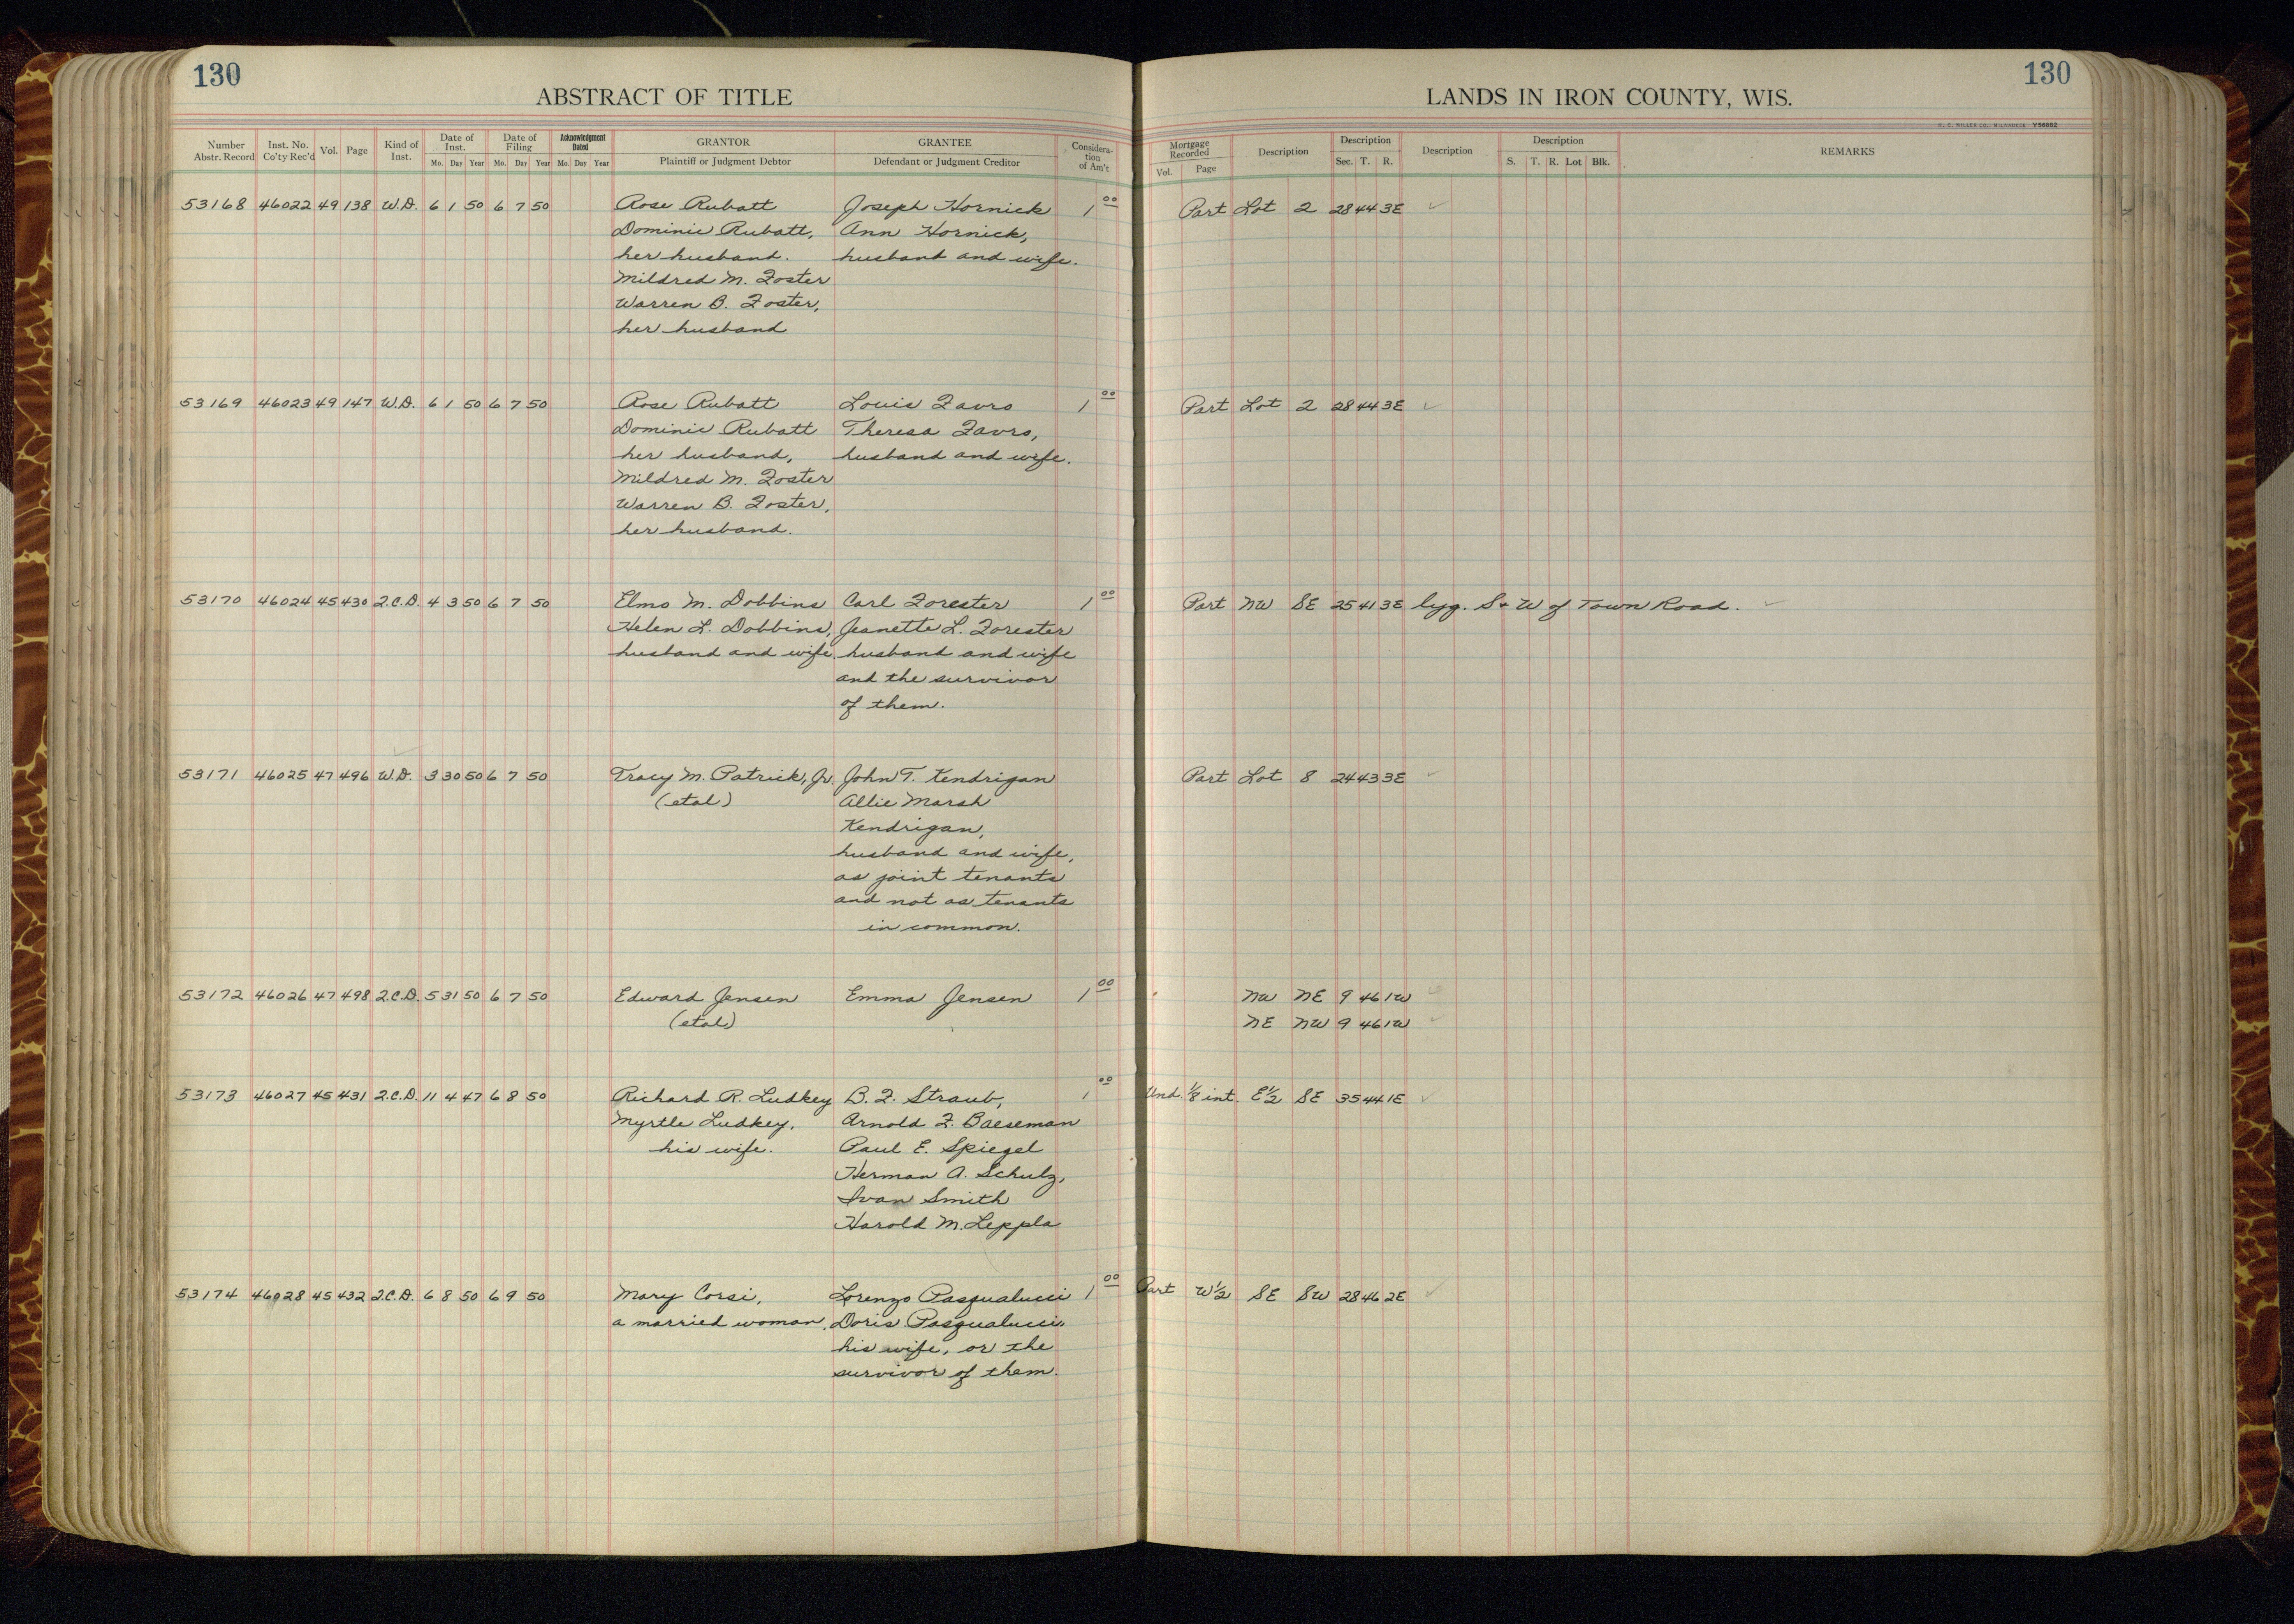 130
130
ABSTRACT OF TITLE
LANDS IN IRON COUNTY, WIS.
H. C. MILLER CO., MILWAUKEE Y56682
Number Abstr. Record Inst. No. Co'ty Rec'd Vol. Page Kind of Inst. Date of Inst. Mo. Day Year Date of Filing Mo. Day Year Acknowledgment Dated Mo. Day Year GRANTOR Plaintiff or Judgment Debtor GRANTEE Defendant or Judgment Creditor Considera-tion of Am't Mortgage Recorded Vol. Page Description Description Sec. T. R. Description Description S. T. R. Lot Blk. REMARKS
53168 46022 49 138 W.D. 6 1 50 6 7 50 Rose Rubatt Joseph Hornick 1 00 Part Lot 2 28 44 3E ✓
Dominic Rubatt, Ann Hornick,
her husband. husband and wife.
Mildred M. Foster
Warren B. Foster,
her husband
53169 46023 49 147 W.D. 6 1 50 6 7 50 Rose Rubatt Louis Favro 1 00 Part Lot 2 28 44 3E ✓
Dominic Rubatt Theresa Favro,
her husband, husband and wife.
Mildred M. Foster
Warren B. Foster,
her husband.
53170 46024 45 430 Q.C.D. 4 3 50 6 7 50 Elmo M. Dobbins Carl Forester 1 00 Part NW SE 25 41 3E lyg. S + W of Town Road. ✓
Helen L. Dobbins, Jeanette L. Forester
husband and wife. husband and wife
and the survivor
of them.
53171 46025 47 496 W.D. 3 30 50 6 7 50 Tracy M. Patrick, Jr. John T. Kendrigan Part Lot 8 24 43 3E ✓
(etal) Allie Marsh
Kendrigan,
husband and wife,
as joint tenants
and not as tenants
in common.
53172 46026 47 498 Q.C.D. 5 31 50 6 7 50 Edward Jensen Emma Jensen 1 00 NW NE 9 46 1W ✓
(etal) NE NW 9 46 1W ✓
53173 46027 45 431 Q.C.D. 11 4 47 6 8 50 Richard R. Ludkey B. F. Straub, 1 00 Und. 1/8 int. E½ SE 35 44 1E ✓
Myrtle Ludkey, Arnold F. Baeseman
his wife. Paul E. Spiegel
Herman A. Schulz,
Ivan Smith
Harold M. Leppla
53174 46028 45 432 Q.C.D. 6 8 50 6 9 50 Mary Corsi, Lorenzo Pasqualucci 1 00 Part W½ SE SW 28 46 2E ✓
a married woman, Doris Pasqualucci,
his wife, or the
survivor of them.